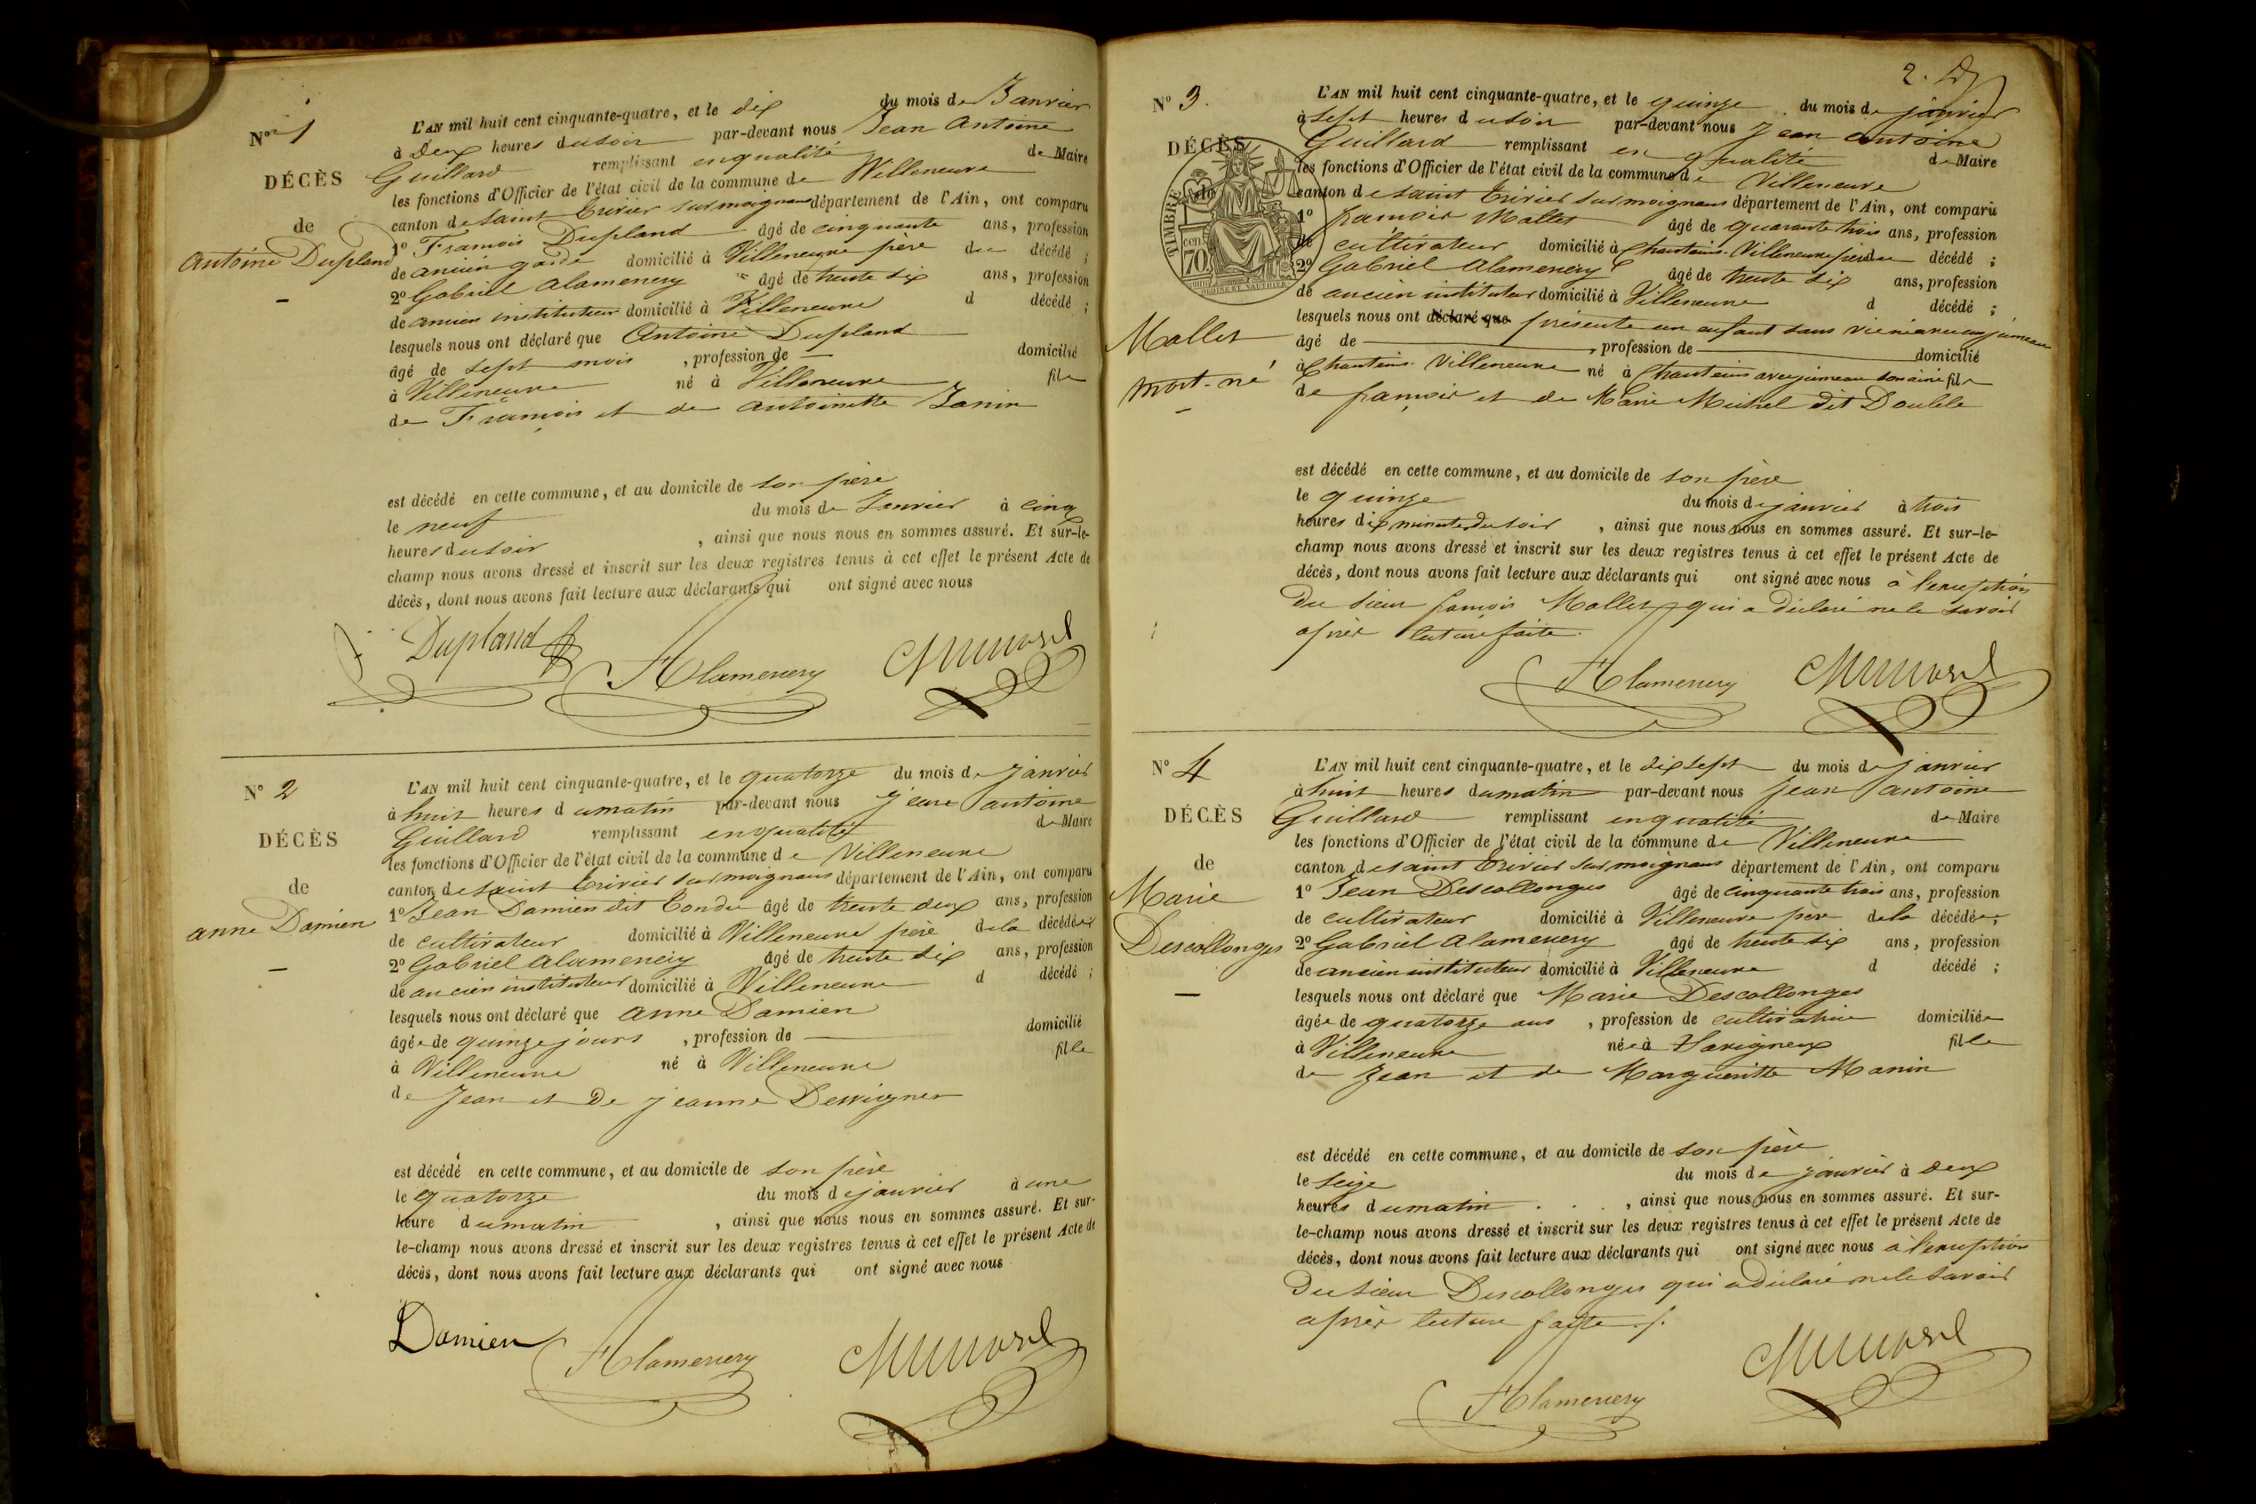 N° 1
DÉCÈS
de
Antoine Dupland
L'AN mil huit cent cinquante-quatre, et le dix du mois de Janvier
à Deux heures du soir par-devant nous Jean Antoine
Guillard remplissant en qualité de Maire
les fonctions d'Officier de l'état civil de la commune de Villeneuve
canton de saint Trivier sur moignans département de l'Ain, ont comparu
1° François Dupland âgé de cinquante ans, profession
de ancien garde domicilié à Villeneuve père du décédé ;
2° Gabriel Alamenery âgé de trente six ans, profession
de ancien instituteur domicilié à Villeneuve d décédé ;
lesquels nous ont déclaré que Antoine Dupland
âgé de sept mois , profession de — domicilié
à Villeneuve né à Villeneuve fils
de François et de antoinette Janin
est décédé en cette commune, et au domicile de son père
le neuf du mois de Janvier à cinq
heures du soir , ainsi que nous nous en sommes assuré. Et sur-le-
champ nous avons dressé et inscrit sur les deux registres tenus à cet effet le présent Acte de
décès, dont nous avons fait lecture aux déclarants qui ont signé avec nous
Dupland Alamenery
N° 2
DÉCÈS
de
anne Damien
L'AN mil huit cent cinquante-quatre, et le quatorze du mois de janvier
à huit heures du matin par-devant nous jean antoine
Guillard remplissant en qualité de Maire
les fonctions d'Officier de l'état civil de la commune de Villeneuve
canton de saint Trivier sur moignans département de l'Ain, ont comparu
1° Jean Damien dit Tondu âgé de trente deux ans, profession
de cultivateur domicilié à Villeneuve père de la décédée ;
2° Gabriel Alamenery âgé de trente six ans, profession
de ancien instituteur domicilié à Villeneuve d décédé ;
lesquels nous ont déclaré que anne Damien
âgée de quinze jours , profession de — domicilié
à Villeneuve né à Villeneuve fille
de Jean et De jeanne
est décédé en cette commune, et au domicile de son père
le quatorze du mois de janvier à une
heure du matin , ainsi que nous nous en sommes assuré. Et sur-
le-champ nous avons dressé et inscrit sur les deux registres tenus à cet effet le présent Acte de
décès, dont nous avons fait lecture aux déclarants qui ont signé avec nous
Damien Alamenery
2.
N° 3.
DÉCÈS
de
Mallet
mort-né
TIMBRE
cen
70
L'AN mil huit cent cinquante-quatre, et le quinze du mois de janvier
à sept heures du soir par-devant nous jean antoine
Guillard remplissant en qualité de Maire
les fonctions d'Officier de l'état civil de la commune de Villeneuve
canton de saint Trivier sur moignans département de l'Ain, ont comparu
1° françois Mallet âgé de quarante trois ans, profession
de cultivateur domicilié à Chanteins Villeneuve père du décédé ;
2° Gabriel Alamenery âgé de trente six ans, profession
de ancien instituteur domicilié à Villeneuve d décédé ;
lesquels nous ont déclaré que présente un enfant sans vie jumeau
âgé de — , profession de — domicilié
à Chanteins Villeneuve né à Chanteins avec jumeau son ainé fils
de françois et de Marie Michel dit Double
est décédé en cette commune, et au domicile de son père
le quinze du mois de janvier à trois
heures dix minutes du soir , ainsi que nous nous en sommes assuré. Et sur-le-
champ nous avons dressé et inscrit sur les deux registres tenus à cet effet le présent Acte de
décès, dont nous avons fait lecture aux déclarants qui ont signé avec nous à l'exception
Du sieur françois Mallet qui a déclaré ne le savoir
après lecture faite.
Alamenery
N° 4
DÉCÈS
de
Marie
Descollonges
L'AN mil huit cent cinquante-quatre, et le dix sept du mois de janvier
à huit heures du matin par-devant nous Jean antoine
Guillard remplissant en qualité de Maire
les fonctions d'Officier de l'état civil de la commune de Villeneuve
canton de saint Trivier sur moignans département de l'Ain, ont comparu
1° Jean Descollonges âgé de cinquante trois ans, profession
de cultivateur domicilié à Villeneuve père de la décédée ;
2° Gabriel Alamenery âgé de trente six ans, profession
de ancien instituteur domicilié à Villeneuve d décédé ;
lesquels nous ont déclaré que Marie Descollonges
âgée de quatorze ans , profession de cultivatrice domiciliée
à Villeneuve née à Savigneux fille
de Jean et de Margueritte Manin
est décédé en cette commune, et au domicile de son père
le seize du mois de janvier à deux
heures du matin , ainsi que nous nous en sommes assuré. Et sur-
le-champ nous avons dressé et inscrit sur les deux registres tenus à cet effet le présent Acte de
décès, dont nous avons fait lecture aux déclarants qui ont signé avec nous à l'exception
Du sieur Descollonges qui a déclaré ne le savoir
après lecture faite.
Alamenery